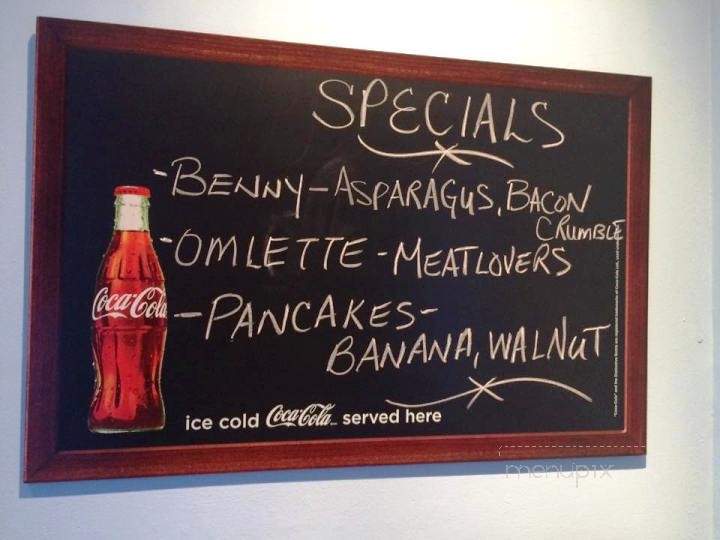 SPECIALS
-BENNY-ASPARAGUS, BACON
CRUMBLE
-OMLETTE-MEATLOVERS
-PANCAKES-
BANANA, WALNUT
Coca-Cola
ice cold Coca-Cola served here
menupix